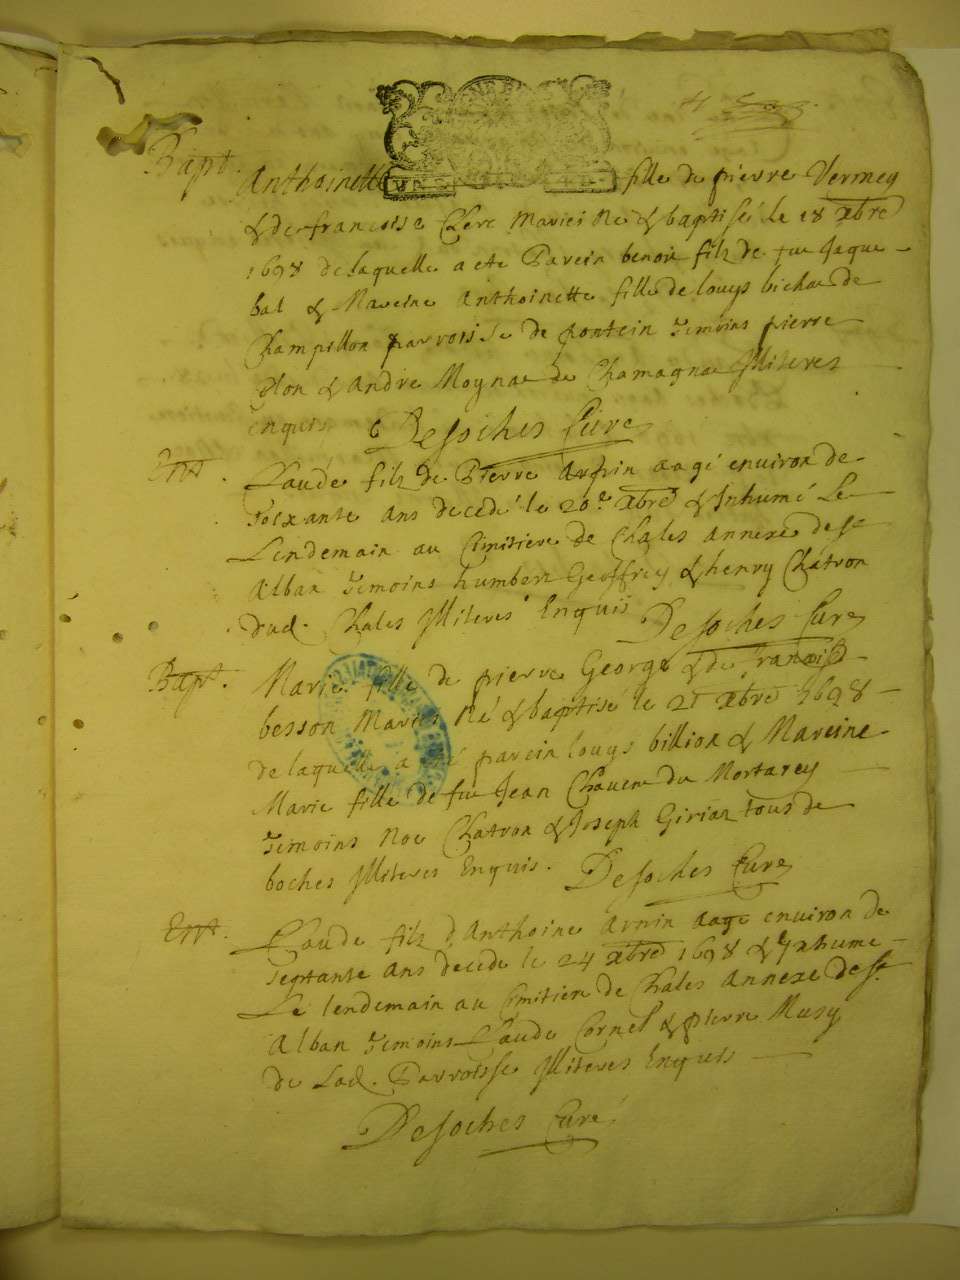 Bapt. Anthoinette fille de pierre Vermey
& de francoise Clerc Mariés Né & baptisé le 18 xbre
1698 de laquelle a ete Parein benoit filz de fue Jaque
bal & Mareine Anthoinette fille de louys bichar de
Champillon parroisse de pontein temoins pierre
& Andre Moynat de Chamagnat Illiteres
Enquis Desoches Cure
Ent. Claude filz de Pierre aagé environ de
soixante ans decedé le 20e xbre & Inhumé Le
Lendemain au Cimitiere de Chales annexe de st
Alban temoins humbert Geoffrey & henry Chatron
dud. Chales Illiteres Enquis Desoches Cure
Bapt. Marie fille de pierre George & de
besson Mariés Né & baptisé le 21 xbre 1698
de laquelle a été parein louys billion & Mareine
Marie fille de fue Jean du Mortarey
temoins Noe Chatron & Joseph Girian tous de
boches Illiteres Enquis. Desoches Cure
Ent. Claude filz d'Anthoine Arnin aagé environ de
septante ans decede le 24 xbre 1698 & Inhume
Le lendemain au Cimitiere de Chales Annexe de st
Alban temoins Claude Cornet & pierre Musy
de Lad. Parroisse Illiteres Enquis
Desoches Curé